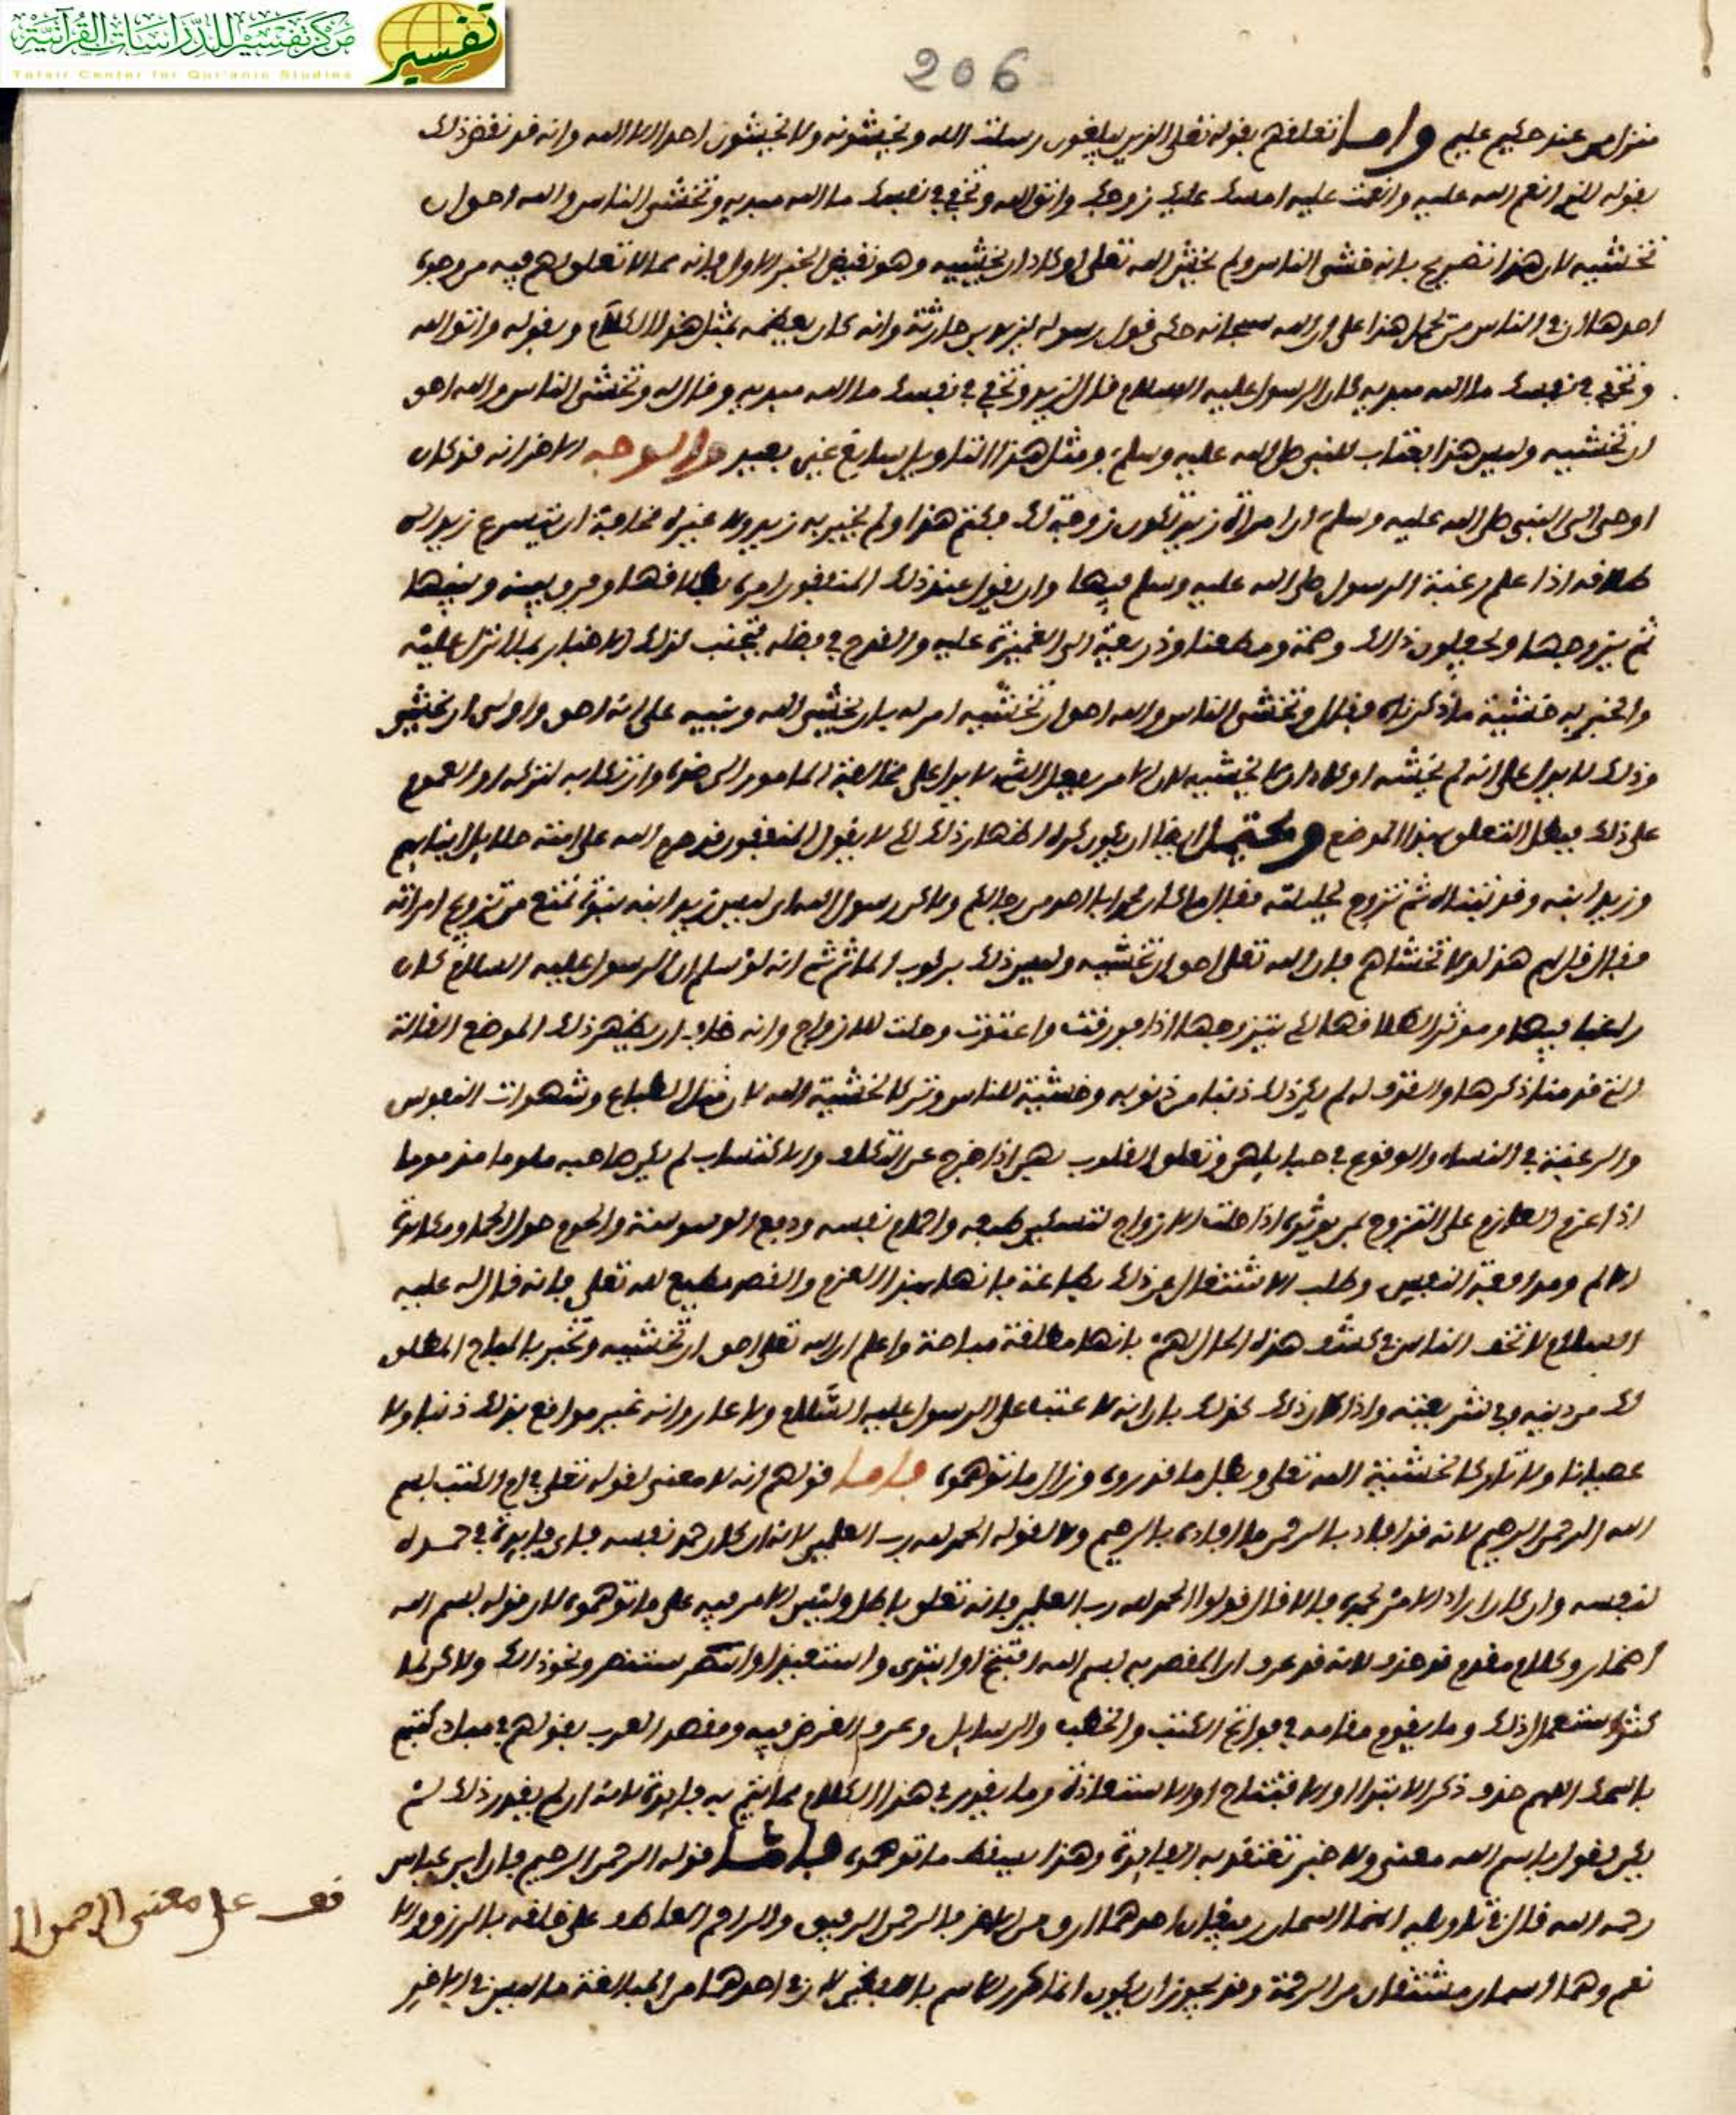 مركز تفسير للدراسات القرآنية
تفسير
Tafsir Center for Qur'anic Studies
206
منزل من عند حكيم عليم واما تعلقهم بقوله تعلى الذين يبلغون رسلت الله ويخشونه ولا يخشون احدا الا الله وانه قد نقض ذلك
بقوله للذي انعم الله عليه وانعمت عليه امسك عليك زوجك واتق الله وتخفي في نفسك ما الله مبديه وتخشى الناس والله احق ان
تخشيه لان هذا تصريح بانه خشي الناس ولم يخش الله تعلى او كاد ان يخشيه وهو نقيض الخبر الاول فانه مما لا تعلق لهم فيه من وجوه
احدها ان في الناس من يحمل هذا على ان الله سبحانه حكى قول رسوله لزيد بن حارثة وانه كان يعظه بمثل هذا الكلام وبقوله واتق الله
وتخفي في نفسك ما الله مبديه كان الرسول عليه السلام قال لزيد وتخفي في نفسك ما الله مبديه وقال له وتخشى الناس والله احق
ان تخشيه وليس هذا بعتاب للنبي صلى الله عليه وسلم ومثل هذا التاويل سايغ غير بعيد والوجه الاخر انه قد كان
اوحى الى النبي صلى الله عليه وسلم ان امراة زيد تكون زوجة لك فكتم هذا ولم يخبر به زيد ولا غيره مخافة ان يتسرع زيد الى
طلاقها اذا علم رغبة الرسول صلى الله عليه وسلم فيها وان يقول عند ذلك المنافقون امره بطلاقها وفرق بينه وبينها
ثم يتزوجها ويجعلون ذلك وصمة ومطعنا وذريعة الى الغميزة عليه والقدح في فضله فتجنب لذلك الاخبار بما نزل عليه
والخبر به خشية ما ذكرناه فقال وتخشى الناس والله احق ان تخشيه امر له بان يخشى الله وتنبيه على انه احق واولى ان يخشى
وذلك لا يدل على انه لم يخشه او كاد ان لا يخشيه لان الامر بفعل الشي لا يدل على مخالفة المامور الى ضده وارتكابه لتركه او العموم
على ذلك فبطل التعلق بهذا الموضع ويحتمل ايضا ان يكون كره اظهار ذلك لئلا يقول المنافقون قد حرم الله على امته حلايل ابنايهم
وزيد ابنه وقد تبناه ثم تزوج بحليلته فقال ما كان محمد ابا احد من رجالكم ولاكن رسول الله اي ليس زيد ابنه بنبوة تمنع من تزويج امراته
فقال قل لهم هذا ولا تخشاهم فان الله تعلى احق ان تخشيه وليس ذلك بركوب الماثم ثم انه لو سلم ان الرسول عليه السلام كان
راغبا فيها وموثرا لطلاقها لكي يتزوجها اذا فورقت واعتدت وحلت للازواج وانه خاف ان يظهر ذلك الموضع القالة
التي قدمنا ذكرها والقذف له لم يكن ذلك ذنبا من ذنوبه وخشية للناس وتركا لخشية الله لان ميل الطباع وشهوات النفوس
والرغبة في النساء والوقوع في حبايلهن وتعلق القلوب بهن اذا خرج عن التكلف والاكتساب لم يكن صاحبه ملوما مذموما
اذا عزم العازم على التزوج بمن يوثره اذا حلت للازواج لتسكين طبعه واجمام نفسه ودفع الوسوسة والحوم حول الحما ومكابدة
الالم ومدافعة النفس وطلب الاشتغال عن ذلك بطاعة فانها بهذا العزم والقصد مطيع لله تعلى فانه قال له عليه
السلام لا تخف الناس في كشف هذه الحال لهم فانها مطلقة مباحة واعلم ان الله تعلى احق ان تخشيه وتخبر بالمباح المطلق
لك من دينه وفي شريعته واذا كان ذلك كذلك بان انه لا عتب على الرسول عليه السلام ولا عار وانه غير مواقع بذلك ذنبا ولا
عصيانا ولا تاركا لخشية الله تعلى وبطل ما قدروه وزال ما توهموه فاما قولهم انه لا معنى لقوله تعلى في اول الكتب بسم
الله الرحمن الرحيم لانه قد افاد بالرحمن ما افاده بالرحيم ولا لقوله الحمد لله رب العلمين لانه ان كان حمد نفسه فاي فايدة في حمده
لنفسه وان كان اراد الامر بحمده فالا قال قولوا الحمد لله رب العلمين فانه تعلق باطل وليس الامر فيه على ما توهموه لان قوله بسم الله
اضمار وكلام مقدم قد حذف لانه قد عرف ان المقصد به بسم الله افتتح او ابتدى واستعيذ او استنصر ونحو ذلك ولاكن لما
كثر استعمال ذلك وما يقوم مقامه في فواتح الكتب والخطب والرسايل وعرف الغرض فيه ومقصد العرب بقولهم في مبادى كتبهم
باسمك اللهم حذف ذكر الابتدا او الافتتاح او الاستعاذة وما يقدر في هذا الكلام مما تتم به فايدة لانه ان لم يقدر ذلك لم
يكن لقول باسم الله معنى ولا خبر تعتقد به الفايدة وهذا يسقط ما توهموه فاما قوله الرحمن الرحيم فان ابن عباس
رحمه الله قال في تاويله انهما اسمان رفيقان احدهما ارق من الاخر فالرحمن الرفيق والراحم العاطف على خلقه بالرزق والا
نعم وهما اسمان مشتقان من الرحمة وقد يجوز ان يكون انما كرر الاسم بالـ لان في احدهما من المبالغة ما ليس في الاخر
قف على معنى الرحمن ال